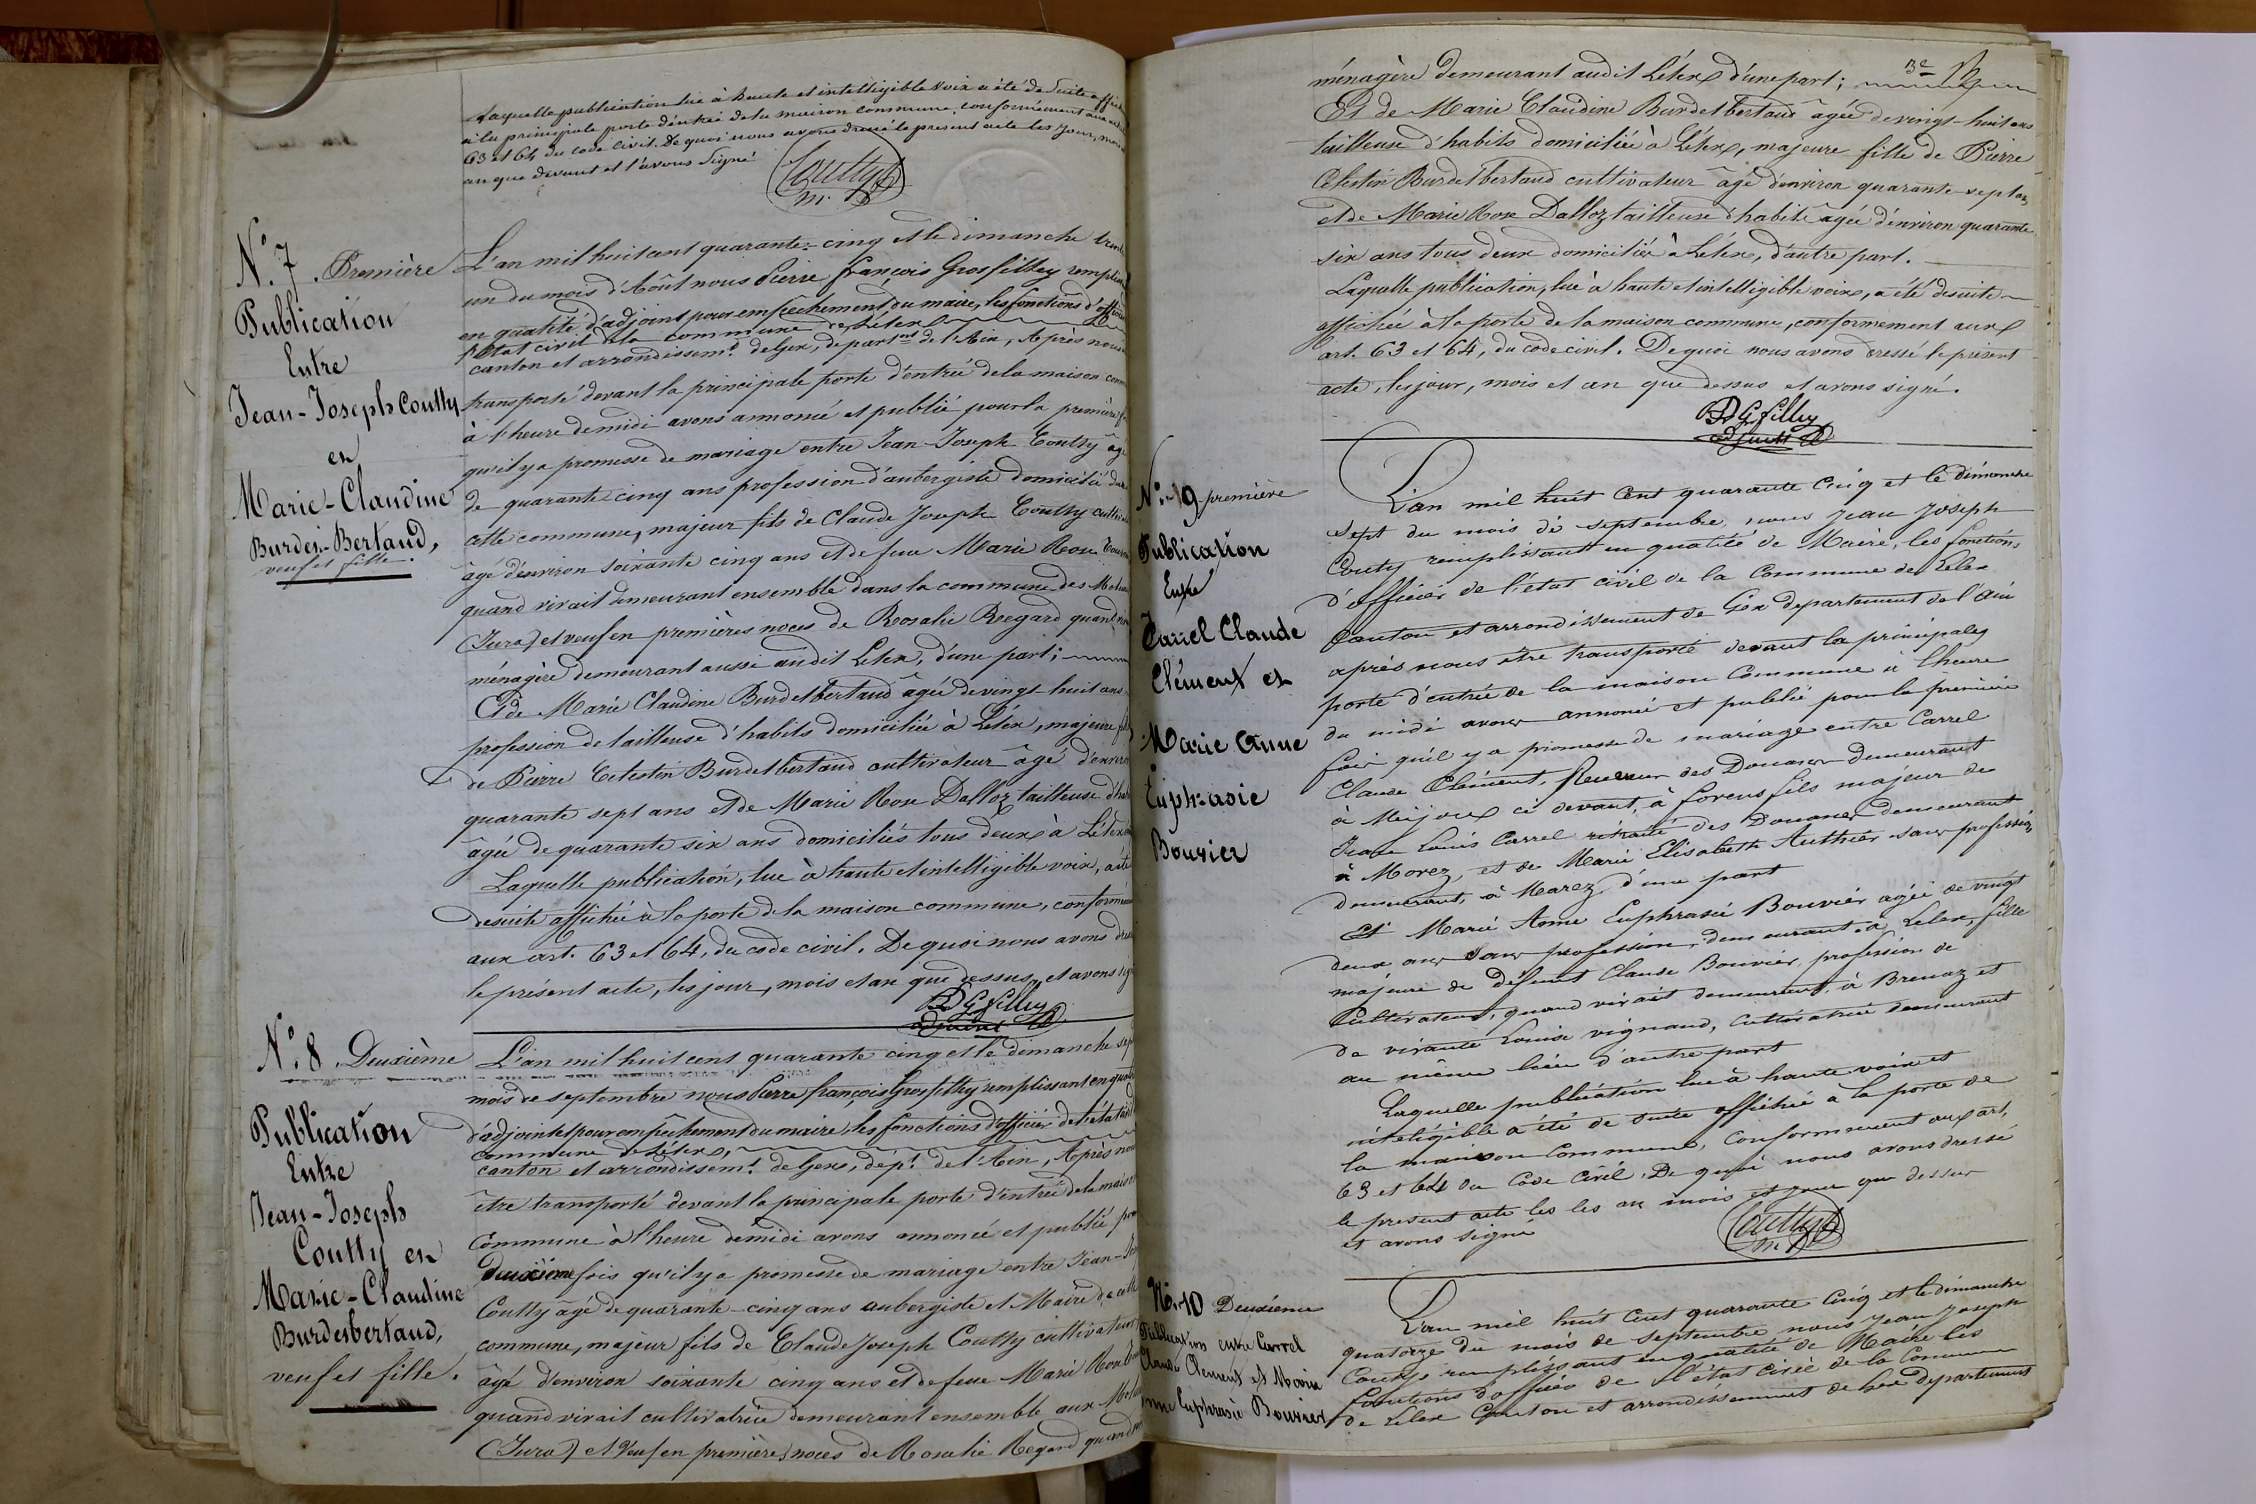 Laquelle publication lue à haute et intelligible voix a été de suite
à la principale porte d'entrée de la maison commune conformément aux
63 et 64 du code civil. De quoi nous avons dressé le présent acte les jour, mois
an que devant et l'avons signé
Coutty
m.
N.º 7. Première
Publication
Entre
Jean-Joseph Coutty
et
Marie-Claudine
Burdet-Bertaud,
veuf et fille.
L'an mil huit cent quarante-cinq et le dimanche trente
un du mois d'Août nous Pierre françois Grosfilley
en qualité d'adjoint pour empêchement du maire, les fonctions d'officier
l'état civil de la commune de Lélex
canton et arrondissem.t de Gex, départ.nt de l'Ain, Après nous
transporté devant la principale porte d'entrée de la maison
à l'heure de midi avons annoncé et publié pour la première
qu'il y a promesse de mariage entre Jean-Joseph Coutty
de quarante-cinq ans profession d'aubergiste domicilié
cette commune, majeur fils de Claude Joseph Coutty
âgé d'environ soixante cinq ans et de feue Marie Rose
quand vivait demeurant ensemble dans la commune des
(Jura) et veuf en premières noces de Rosalie Regard quand
ménagère demeurant aussi audit Lélex, d'une part;
Et de Marie Claudine Burdetbertaud âgée de vingt-huit ans
profession de tailleuse d'habits domiciliée à Lélex, majeure
de Pierre Celestin Burdetbertaud cultivateur âgé d'environ
quarante sept ans et de Marie Rose Dalloz tailleuse
âgée de quarante six ans domiciliés tous deux à Lélex
Laquelle publication, lue à haute et intelligible voix, a été
de suite affichée à la porte de la maison commune,
aux art. 63 et 64, du code civil. De quoi nous avons
le présent acte, les jour, mois et an que dessus, et avons
Gfilley
adjoint
N.º 8. Deuxième
Publication
Entre
Jean-Joseph
Coutty et
Marie-Claudine
Burdetbertaud,
veuf et fille.
L'an mil huit cent quarante cinq et le dimanche
mois de septembre nous Pierre françois Grosfilley remplissant en
d'adjoint et pour empêchement du maire les fonctions d'officier de l'état
commune de Lélex,
canton et arrondissem.t de Gex, dép.t de l'Ain, Après
être transporté devant la principale porte d'entrée de la
Commune à l'heure de midi avons annoncé et publié
deuxième fois qu'il y a promesse de mariage entre
Coutty âgé de quarante-cinq ans aubergiste et Maire de
commune, majeur fils de Claude Joseph Coutty cultivateur
âgé d'environ soixante cinq ans et de feue Marie
quand vivait cultivatrice demeurant ensemble aux
(Jura) et Veuf en premières noces de Rosalie Regard
ménagère demeurant audit Lélex d'une part;
Et de Marie Claudine Burdetbertaud âgée de vingt-huit ans
tailleuse d'habits domiciliée à Lélex, majeure fille de Pierre
Celestin Burdetbertaud cultivateur âgé d'environ quarante-sept ans
et de Marie Rose Dalloz tailleuse d'habits âgée d'environ quarante
six ans tous deux domiciliés à Lélex, d'autre part.
Laquelle publication, lue à haute et intelligible voix, a été de suite
affichée à la porte de la maison commune, conformément aux
art. 63 et 64, du code civil. De quoi nous avons dressé le présent
acte, les jour, mois et an que dessus et avons signé.
Gfilley
adjoint
N.º 9 première
Publication
Entre
Carrel Claude
Clément et
Marie Anne
Euphrasie
Bouvier
L'an mil huit Cent quarante Cinq et le dimanche
sept du mois de septembre, nous Jean Joseph
Coutty remplissant en qualité de Maire, les fonctions
d'officier de l'état civil de la Commune de Lelex
Canton et arrondissement de Gex departement de l'ain
après nous être transporté devant la principale
porte d'entrée de la maison Commune à l'heure
de midi avons annoncé et publié pour la première
fois qu'il y a promesse de mariage entre Carrel
Claude Clément, Receveur des Douanes demeurant
à Mijoux ci devant, à forens fils majeur de
Jean Louis Carrel retraité des Douanes demeurant
à Morez, et de Marie Elisabeth Authier sans profession
demeurant, à Morez d'une part
Et Marie Anne Euphrasie Bouvier agée de vingt
deux ans sans profession, demeurant à Lelex, fille
majeure de défunt Claude Bouvier, profession de
Cultivateur, quand vivait demeurant, à Brenaz et
de vivante Louise vignaud, Cultivatrice demeurant
au même lieu d'autre part
Laquelle publication lue à haute voix et
inteligible a été de suite affichée a la porte de
la maison Commune, Conformement aux art.
63 et 64 du Code Civil. De quoi nous avons dressé
le present acte les les an mois et jour que dessus
et avons signé
Coutty
m.
N.º 10 Deuxième
Publication entre Carrel
Claude Clement et Marie
Euphrasie Bouvier
L'an mil huit Cent quarante Cinq et le dimanche
quatorze du mois de septembre nous Jean Joseph
Coutty remplissant en qualité de Maire les
fonctions d'officier de l'état Civil de la Commune
de Lelex Canton et arrondissement de Gex departement